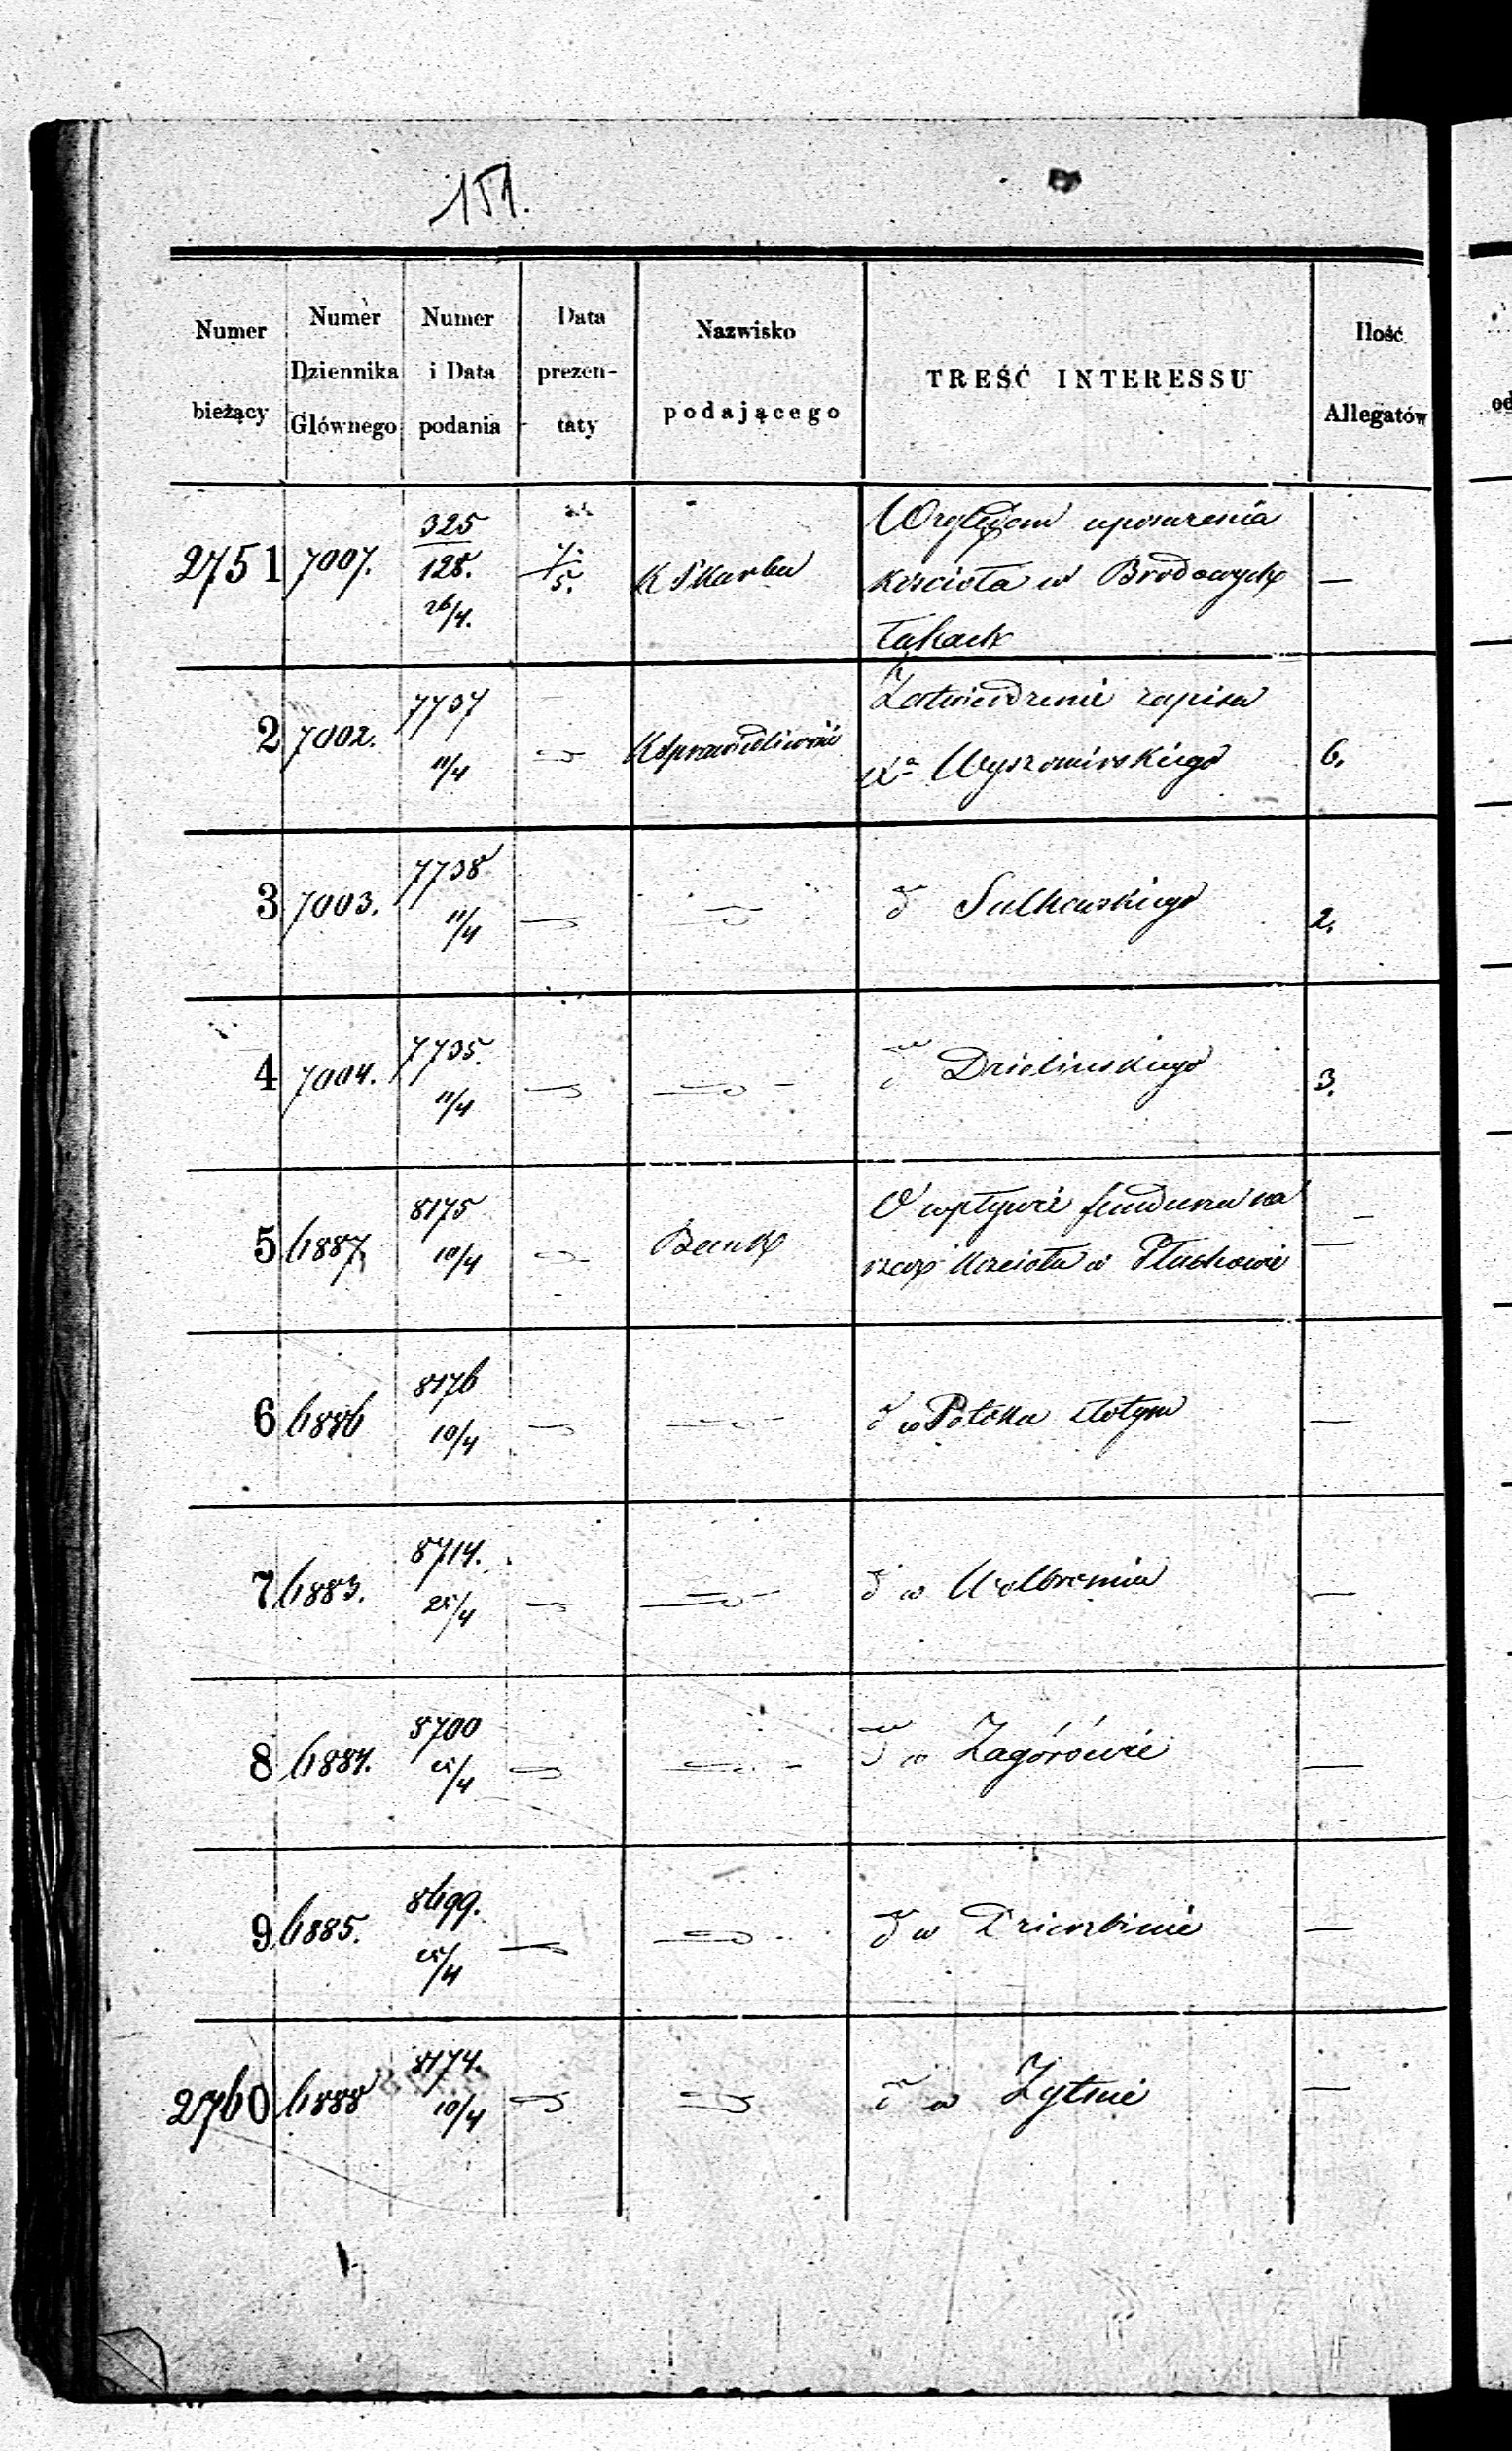 151.
Numer bieżący
Numer Dziennika Głównego
Numer i Data podania
Data prezen- taty
Nazwisko podającego
TREŚĆ INTERESSU
Ilość Allegatów
2751 7007. 325/128. 26/4. 7./5. K Skarbu Względem uposażenia —
kościoła w Brodowych
Łąkach
2 7002. 7737 11/4 K Sprawiedliwości Zatwierdzenie zapisu
Xa Wyszomirskiego 6.
3 7003. 7738 11/4 d Sulkowskiego 2.
4 7004. 7735. 11/4 d Dzielinskiego 3.
5 6887 8175 10/4 Bank O wpływie funduszu na —
rzecz Kościoła w Tłuchowie
6 6886 8176 10/4 d w Potoku złotym —
7 6883. 8714. 25/4 d w Wolbromiu —
8 6884. 8700 25/4 d w Zagórówie —
9 6885. 8699. 25/4 d w Dzierzbinie —
2760 6888 8174. 10/4 d w Zytnie —